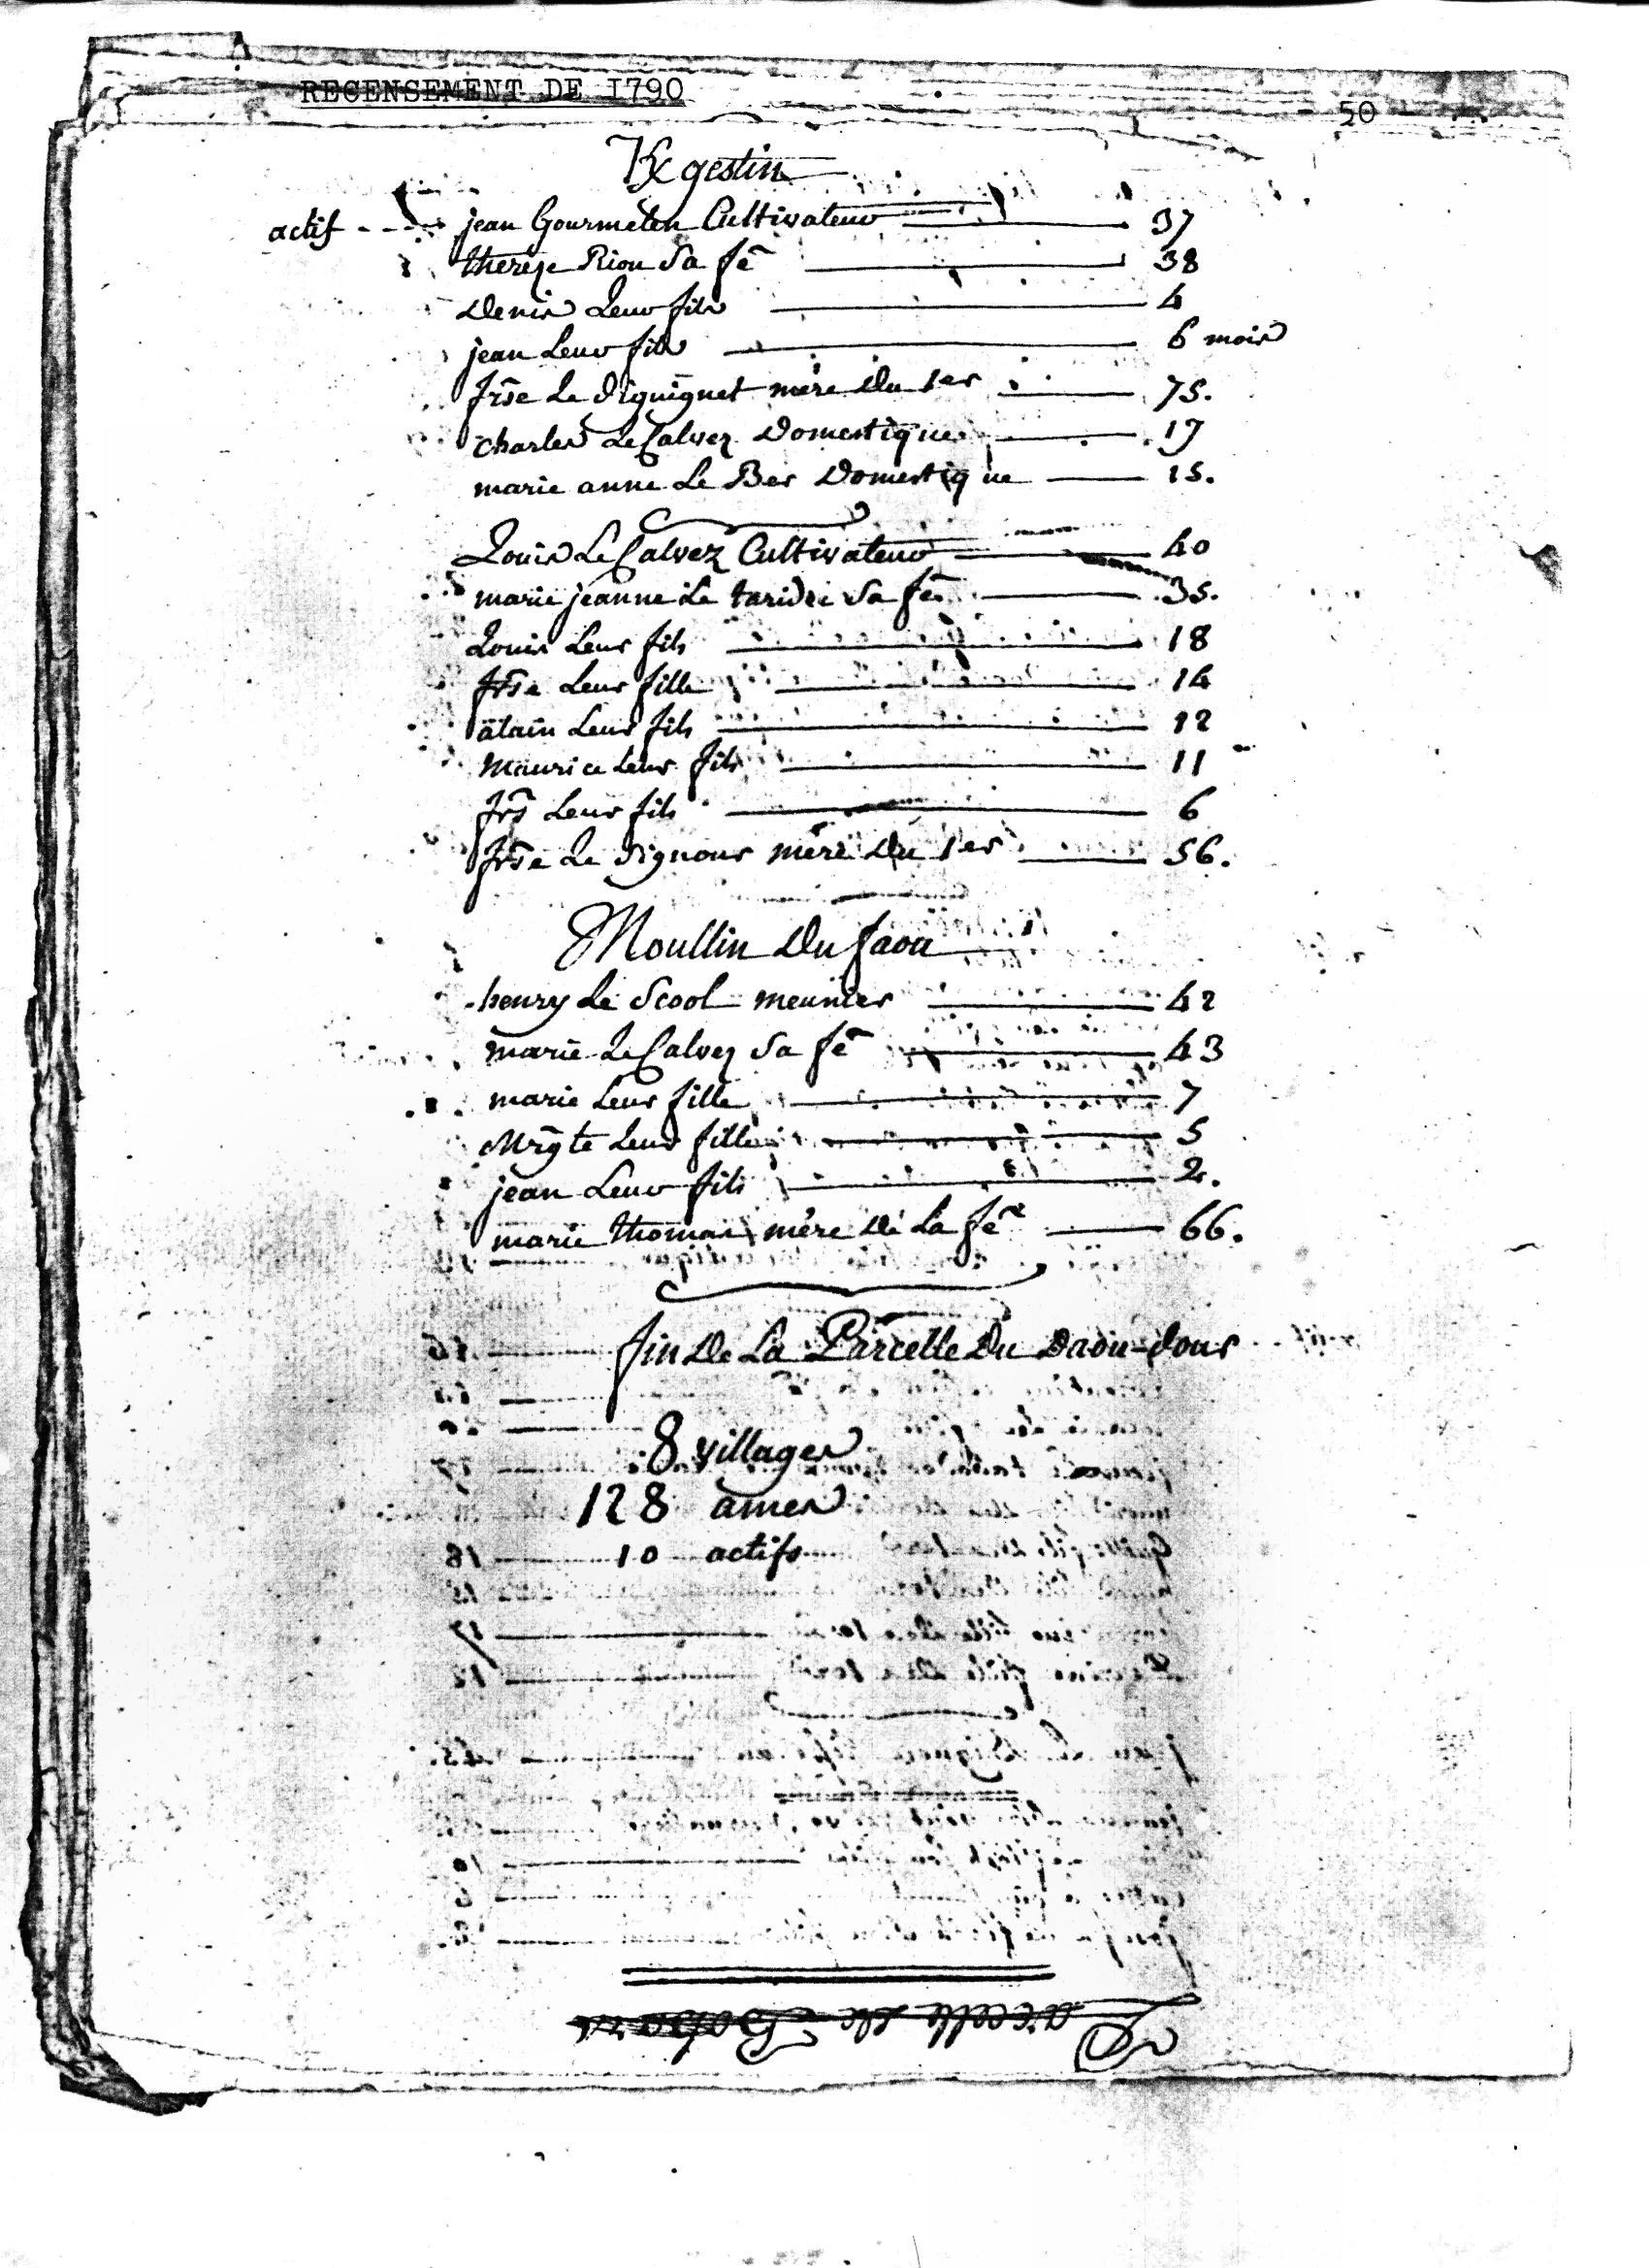 RECENSEMENT DE I790
50
K gestin
actif ---- jean Gourmelen Cultivateur 37
thereze Riou Sa fe 38
Denis Leur fils 4
jean Leur fils 6 mois
frse Le diguignet mère Du 1er 75.
charles Le Calvez Domestique 17
marie anne Le Ber Domestique 15.
Louis Le Calvez Cultivateur 40
marie jeanne Le taridec Sa fe 35.
Louis Leur fils 18
frse Leur fille 14
alain Leur fils 12
maurice Leur fils 11
frs Leur fils 6
frse Le Signour mère Du 1er 56.
Moullin Du faou
henry Le Scool meunier 42
marie Le Calvez Sa fe 43
marie Leur fille 7
Mrgte Leur fille 5
jean Leur fils 2.
marie thomas mère De La fe 66.
fin De La Parcelle Du Daou-dour
8 villages
128 ames
10 actifs